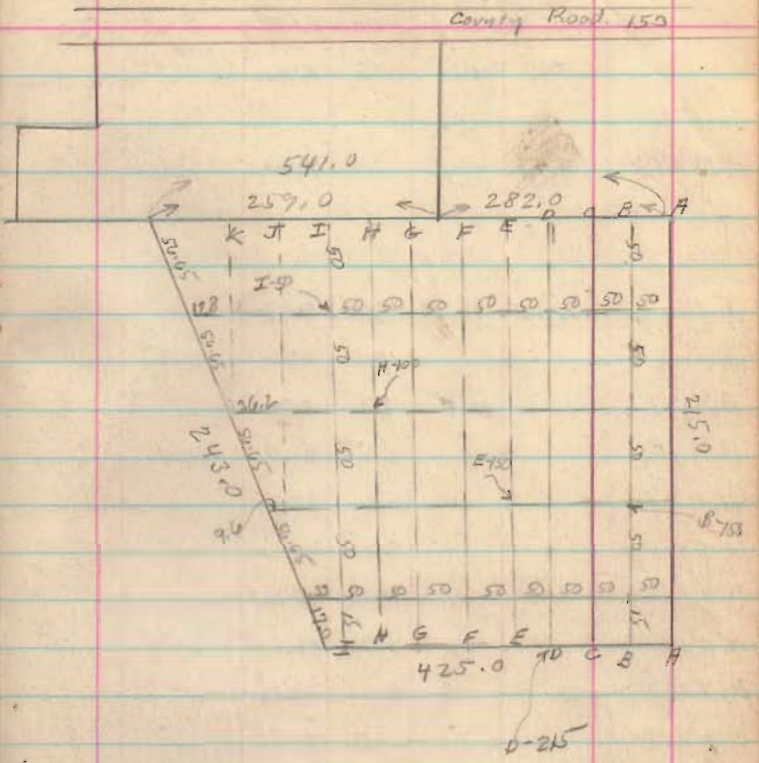 County Road. 150
541.0
259.0 282.0
K J I H G F E D C B A
56.65 50 50
I-50 50 50 50 50 50 50 50 50
17.8
56.65 50 50
H-100
36.2
215.0
243.0 56.65 50 50
E-150
B-150
9.6
56.65 50 50
50 50 50 50 50 50 50 50
17.0 15 15
H G F E D C B A
425.0
D-215